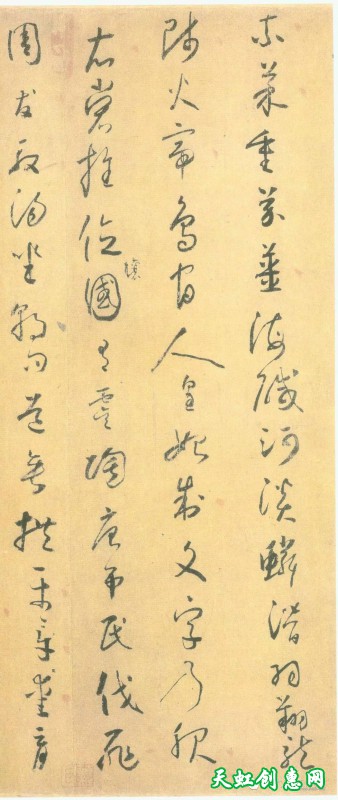 柰菜重芥薑海醎河淡鱗潛羽翔龍
師火帝鳥官人皇始制文字乃服
衣裳推位讓國有虞陶唐弔民伐罪
周發殷湯坐朝問道垂拱平章愛育
天虹创惠网